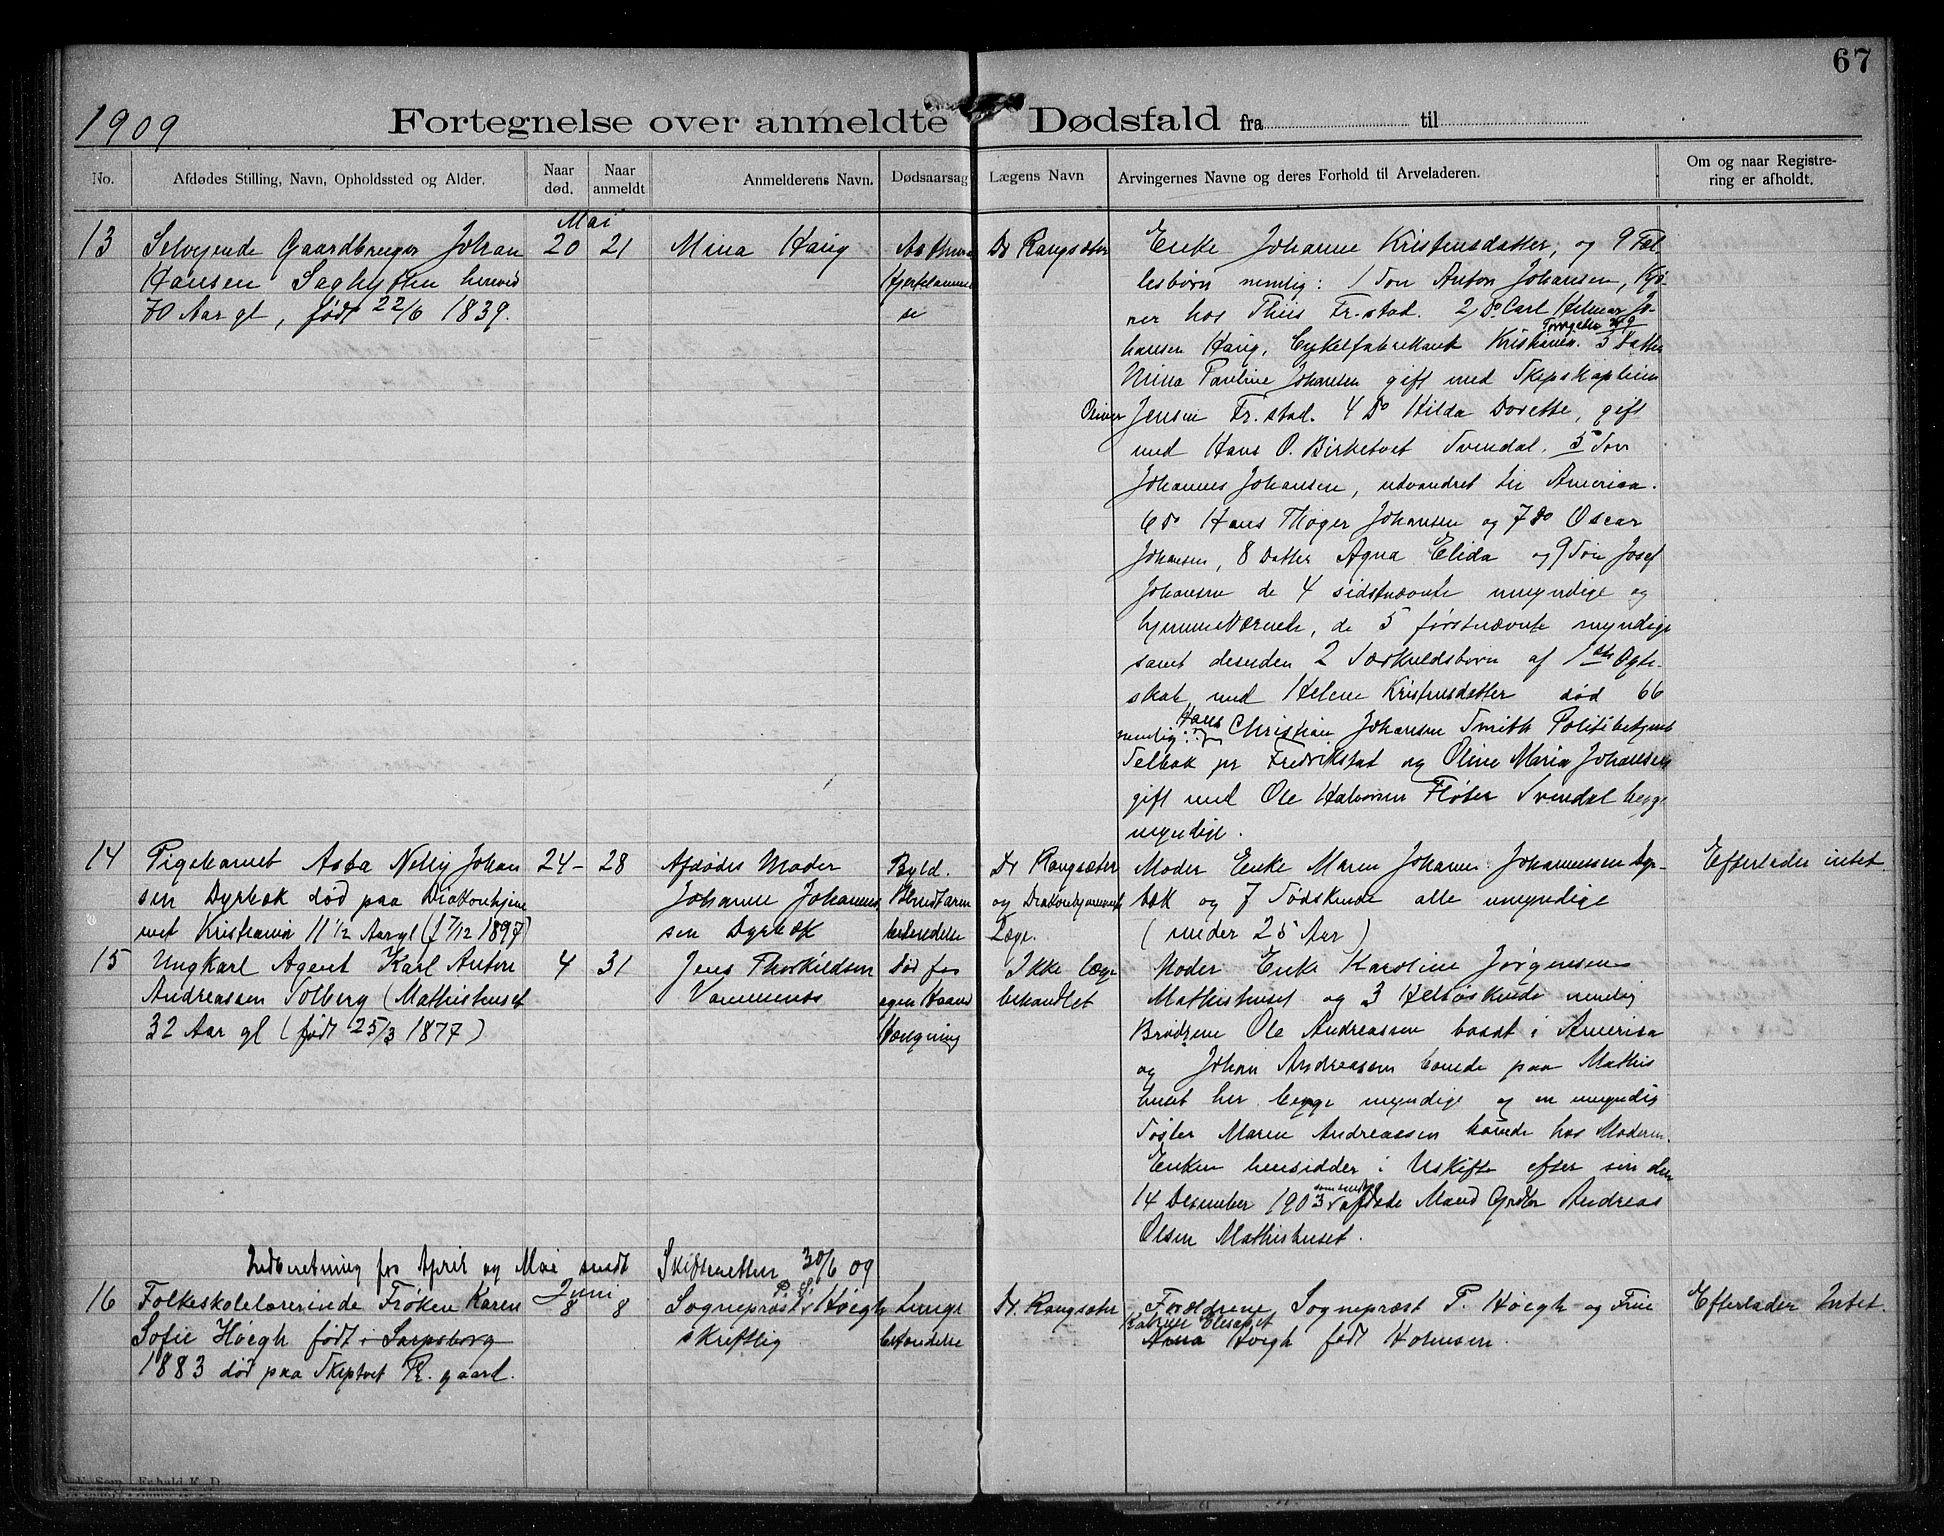 67
1909
Fortegnelse over anmeldte Dødsfald fra til
No.
Afdødes Stilling, Navn, Opholdssted og Alder.
Naar død.
Naar anmeldt
Anmelderens Navn.
Dødsaarsag
Lægens Navn
Arvingernes Navne og deres Forhold til Arveladeren.
Om og naar Registre-
ring er afholdt.
Mai
13 Selveiende Gaardbruger Johan 20 21 Mina Haug
Hansen herved
70 Aar gl, født 22/6 1839.
Asthma
Hjertelammel
se
Dr Rangsæter
Enke Johanne Kristensdatter, og 9 Fæl
lesbørn nemlig: 1 Søn Anton Johansen,
hos Thiis Fr.stad. 2 Do Carl Hilmar Jo-
Torvgaden
hansen Haug, Cykelfabrikant Kristiania. 3 Datter
Mina Pauline Johansen gift med Skipskaptein
Oliver Jensen Fr.stad. 4 Do Hilda Dorette, gift
med Hans O. Birketvet Svendal. 5 Søn
Johannes Johansen, udvandret til America.
6 Do Hans Thøger Johansen og 7 Do Oscar
Johansen, 8 Datter Agna Elida og 9 Søn Josef
Johansen de 4 sidstnævnte umyndige og
hjemmeværende, de 5 førstnævnte myndige
samt desuden 2 Særkuldsbørn af 1ste Ægte-
skab med Helene Kristensdatter død 66
nemlig: Hans Christian Johansen Smith Politibetjent
Selbak pr Fredrikstad og Oline Maria Johansen
gift med Ole Halvorsen Fløter Svendal begge
myndige.
14 Pigebarnet Asba Nelly Johan 24 - 28 Afdødes Moder
sen Dyrbæk død paa Diakonhjem
met Kristiania 11 1/2 Aar gl (f 7/12 1897)
Johanne Johannes
sen Dyrbæk
Byld.
Blindtarm
betendelse
Dr Rangsæter
og Diakonhjemmets
Læge.
Moder Enke Maren Johanne Johannessen Dyr
bæk og 7 Sødskende alle umyndige
(under 25 Aar)
Efterlader intet
15 Ungkarl Agent Karl Anton 4 31 Jens Thorkildsen
Andreassen Solberg (Mathishuset
32 Aar gl (født 25/3 1877)
Død for
egen Haand
Hængning
Ikke læge
behandlet
Moder Enke Karoline Jørgensen
Mathishuset og 3 Helsøskende nemlig
Brødrene Ole Andreassen bosat i America
og Johan Andreassen boende paa Mathis
huset her begge myndige og en umyndig
Søster Maren Andreassen boende hos Moderen.
Enken hensidder i Uskifte efter sin den
14 Desember 1903 afdøde Mand Grdbr Andreas
Olsen Mathishuset.
Indberetning for April og Mai sendt Skifteretten 30/6 09
Juni
16 Folkeskolelærerinde Frøken Karen 8 8 Sogneprest Høegh
Sofie Höegh født i Sarpsborg
1883 død paa Skiptvet Pr. gaard.
skriftlig
Lunge
betændelse
Dr. Rangsæter
Forældrene, Sogneprest P. Höegh og Frue
Elisabet
Anna Høegh født Holmsen.
Efterlader Intet.